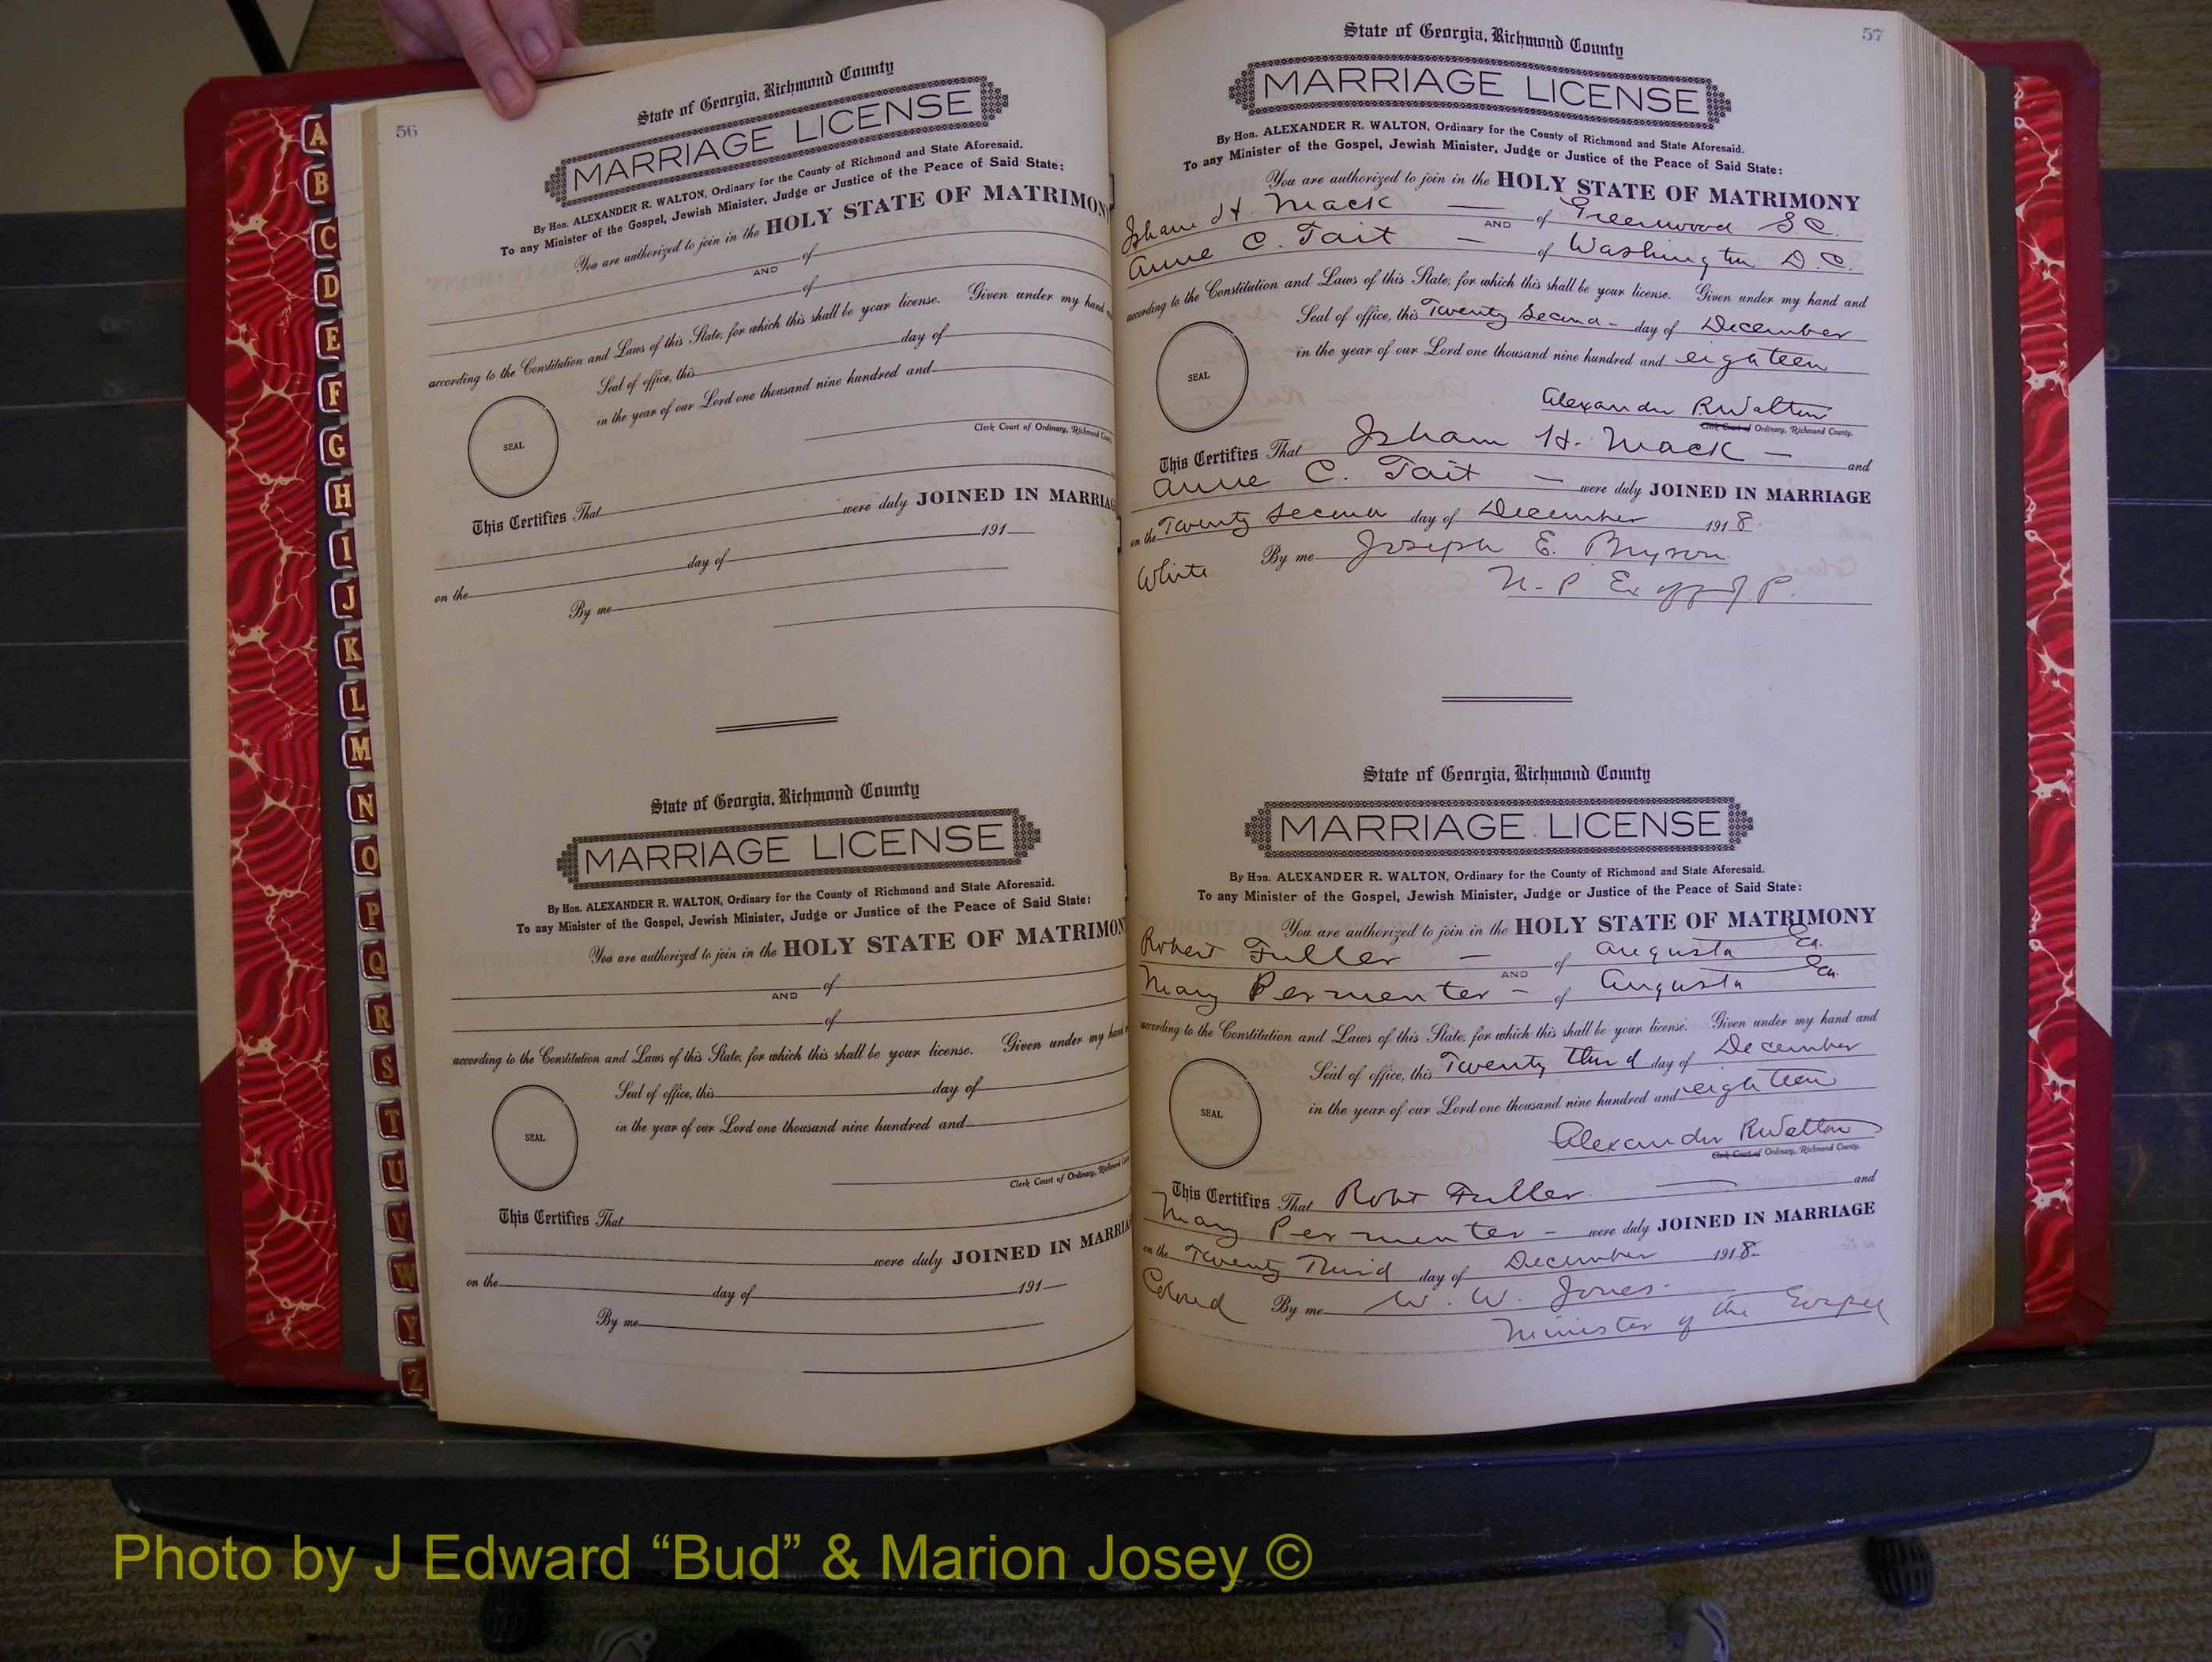 A
B
C
D
E
F
G
H
I
J
K
L
M
N
O
P
Q
R
S
T
U
V
W
Y
Z
56
State of Georgia, Richmond County
MARRIAGE LICENSE
By Hon. ALEXANDER R. WALTON, Ordinary for the County of Richmond and State Aforesaid.
To any Minister of the Gospel, Jewish Minister, Judge or Justice of the Peace of Said State:
You are authorized to join in the HOLY STATE OF MATRIMONY
AND of
of
according to the Constitution and Laws of this State, for which this shall be your license. Given under my hand
Seal of office, this day of
in the year of our Lord one thousand nine hundred and
SEAL
Clerk Court of Ordinary, Richmond
This Certifies That
were duly JOINED IN MARRIAG
on the day of 191
By me
State of Georgia, Richmond County
MARRIAGE LICENSE
By Hon. ALEXANDER R. WALTON, Ordinary for the County of Richmond and State Aforesaid.
To any Minister of the Gospel, Jewish Minister, Judge or Justice of the Peace of Said State:
You are authorized to join in the HOLY STATE OF MATRIMON
AND of
of
according to the Constitution and Laws of this State, for which this shall be your license. Given under my hand
Seal of office, this day of
in the year of our Lord one thousand nine hundred and
SEAL
Clerk Court of Ordinary, Richmond
This Certifies That
were duly JOINED IN MARRIA
on the day of 191
By me
57
State of Georgia, Richmond County
MARRIAGE LICENSE
By Hon. ALEXANDER R. WALTON, Ordinary for the County of Richmond and State Aforesaid.
To any Minister of the Gospel, Jewish Minister, Judge or Justice of the Peace of Said State:
You are authorized to join in the HOLY STATE OF MATRIMONY
Isham H. Mack — AND of Greenwood S.C.
Anne C. Tait — of Washington D.C.
according to the Constitution and Laws of this State, for which this shall be your license. Given under my hand and
Seal of office, this Twenty Second – day of December
in the year of our Lord one thousand nine hundred and eighteen
SEAL
Alexander R Walton
Clerk Court of Ordinary, Richmond County.
This Certifies That Isham H. Mack — and
Anne C. Tait — were duly JOINED IN MARRIAGE
on the Twenty Second day of December 1918.
White By me Joseph E. Bryson
N.P. Ex off J.P.
State of Georgia, Richmond County
MARRIAGE LICENSE
By Hon. ALEXANDER R. WALTON, Ordinary for the County of Richmond and State Aforesaid.
To any Minister of the Gospel, Jewish Minister, Judge or Justice of the Peace of Said State:
You are authorized to join in the HOLY STATE OF MATRIMONY
Robert Fuller — AND of Augusta Ga.
Mary Permenter – of Augusta Ga.
according to the Constitution and Laws of this State, for which this shall be your license. Given under my hand and
Seal of office, this Twenty third day of December
in the year of our Lord one thousand nine hundred and eighteen
SEAL
Alexander R Walton
Clerk Court of Ordinary, Richmond County.
This Certifies That Robt Fuller — and
Mary Permenter – were duly JOINED IN MARRIAGE
on the Twenty Third day of December 1918.
Colored By me W. W. Jones
Minister of the Gospel
Photo by J Edward “Bud” & Marion Josey ©